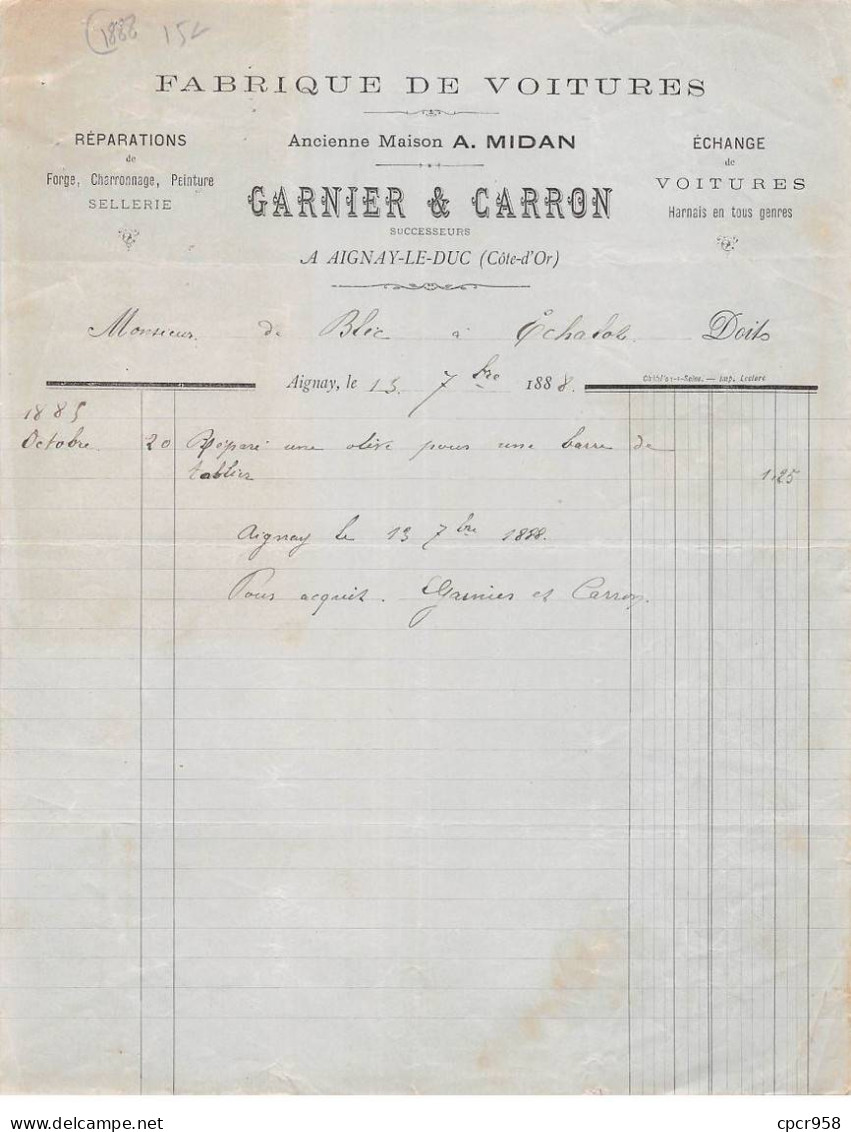 1888 152
FABRIQUE DE VOITURES
RÉPARATIONS
de
Forge, Charronnage, Peinture
SELLERIE
Ancienne Maison A. MIDAN
GARNIER & CARRON
SUCCESSEURS
A AIGNAY-LE-DUC (Côte-d'Or)
ÉCHANGE
de
VOITURES
Harnais en tous genres
Monsieur de Blic à Échalot Doit
Aignay, le 13 7bre 1888.
Chatillon-s-Seine. — Imp. Leclerc
1885
Octobre 20 Réparé une olive pour une barre de
tablier 1,25
Aignay le 13 7bre 1888.
Pour acquit. Garnier et Carron
cpcr958